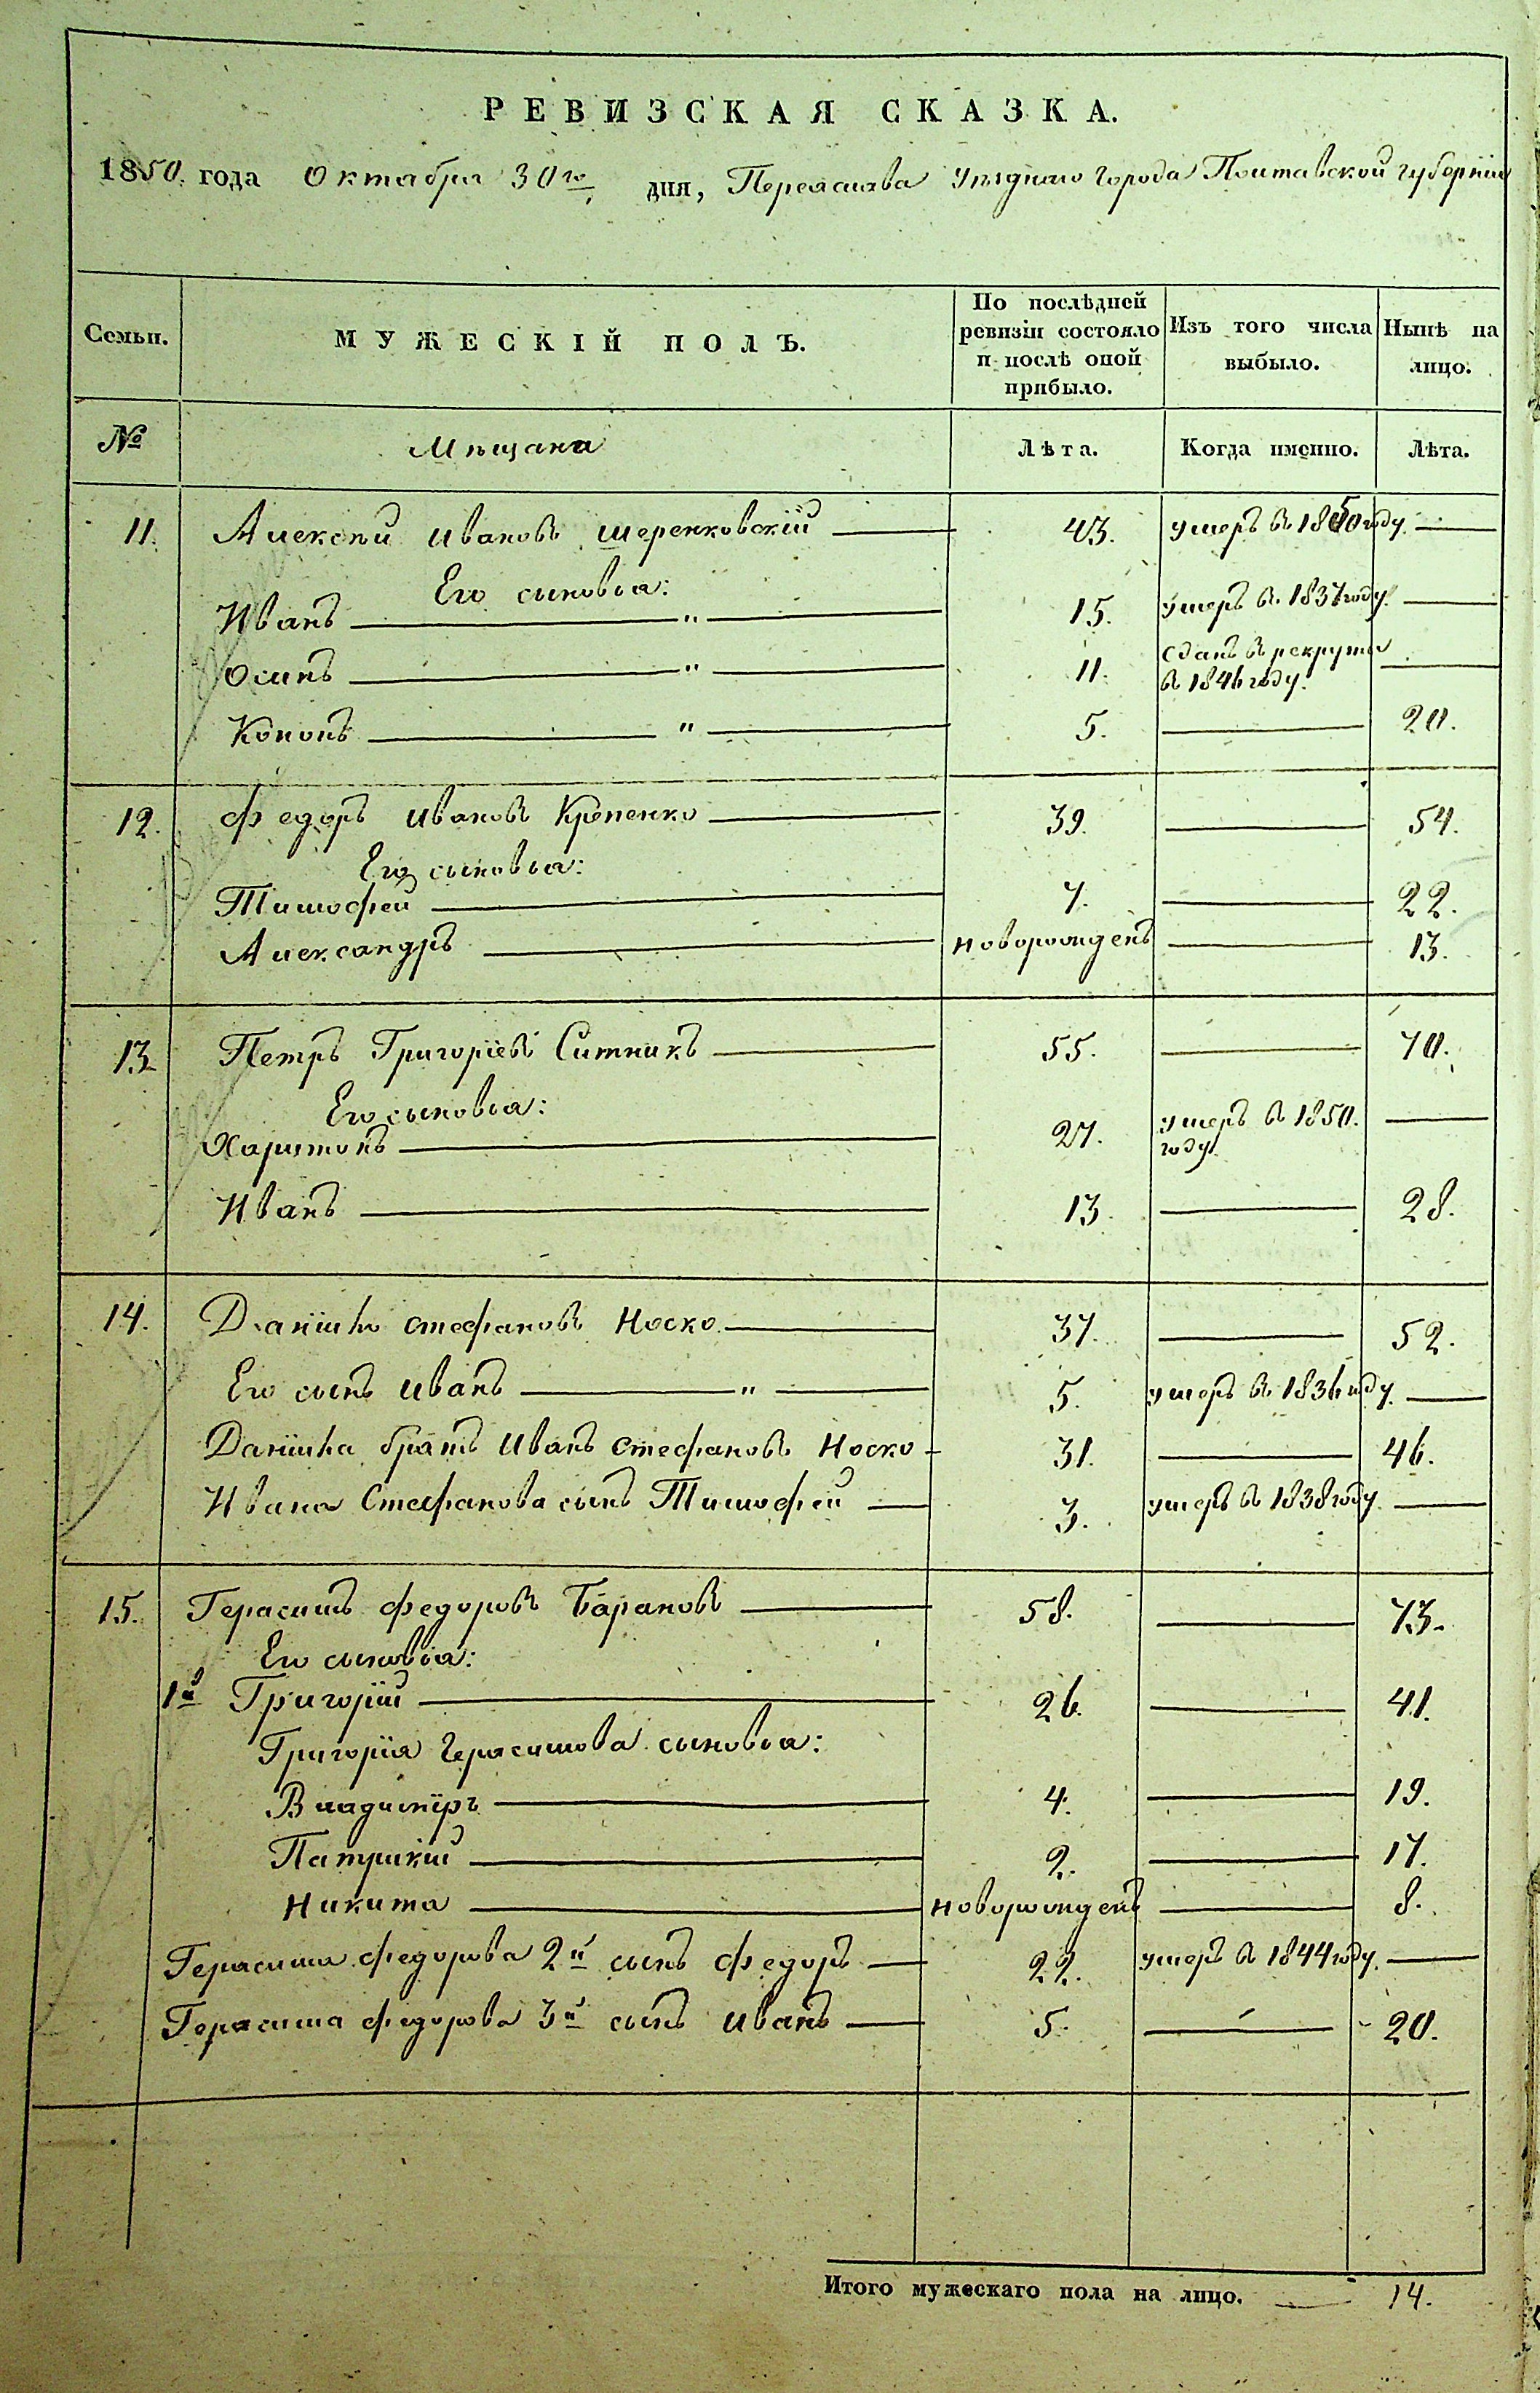 РЕВИЗСКАЯ СКАЗКА.
1850. года Октября 30го дня, Переяслава Уѣзднаго Города Полтавской губерніи
Семьи. МУЖЕСКІЙ ПОЛЪ. По послѣдней ревизіи состояло и послѣ оной прибыло. Изъ того числа выбыло. Нынѣ на лицо.
№ Мѣщане Лѣта. Когда именно. Лѣта.
11. Алексѣй Ивановъ Шеренковскій 43. умеръ в 1850 году.
Его сыновья:
Иванъ " 15. умеръ в. 1837 году.
Осипъ " 11. сданъ в рекруты в 1846 году.
Кононъ " 5. 20.
12. Федоръ Ивановъ Крепенко 39. 54.
Его сыновья:
Тимофей 7. 22.
Александръ новорожденъ 13.
13. Петръ Григоріевъ Ситникъ 55. 70.
Его сыновья:
Харитонъ 27. умеръ в 1850. году.
Иванъ 13. 28.
14. Даніило Стефановъ Носко 37. 52.
Его сынъ Иванъ " 5. умеръ в. 1836 году.
Даніила братъ Иванъ Стефановъ Носко 31. 46.
Ивана Стефанова сынъ Тимофей 3. умеръ в 1838 году.
15. Герасимъ Федоровъ Барановъ 58. 73.
Его сыновья:
1й Григорій 26. 41.
Григорія Герасимова сыновья:
Владиміръ 4. 19.
Патрикій 2. 17.
Никита новорожденъ 8.
Герасима Федорова 2й сынъ Федоръ 22. умеръ в 1844 году.
Герасима Федорова 3й сынъ Иванъ 5. 20.
Итого мужескаго пола на лицо. 14.